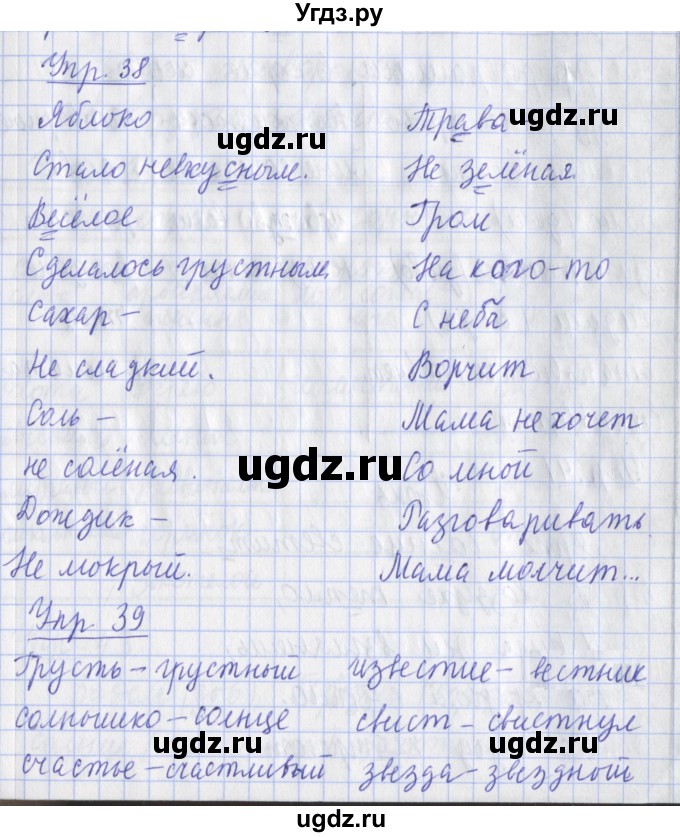 Угдз.ру
Упр. 38
Яблоко
Стало невкусным.
Весёлое
Сделалось грустным
Сахар –
Не сладкий.
Соль –
не солёная.
Дождик –
Не мокрый.
Трава
Не зелёная
Гром
На кого-то
С неба
Ворчит
Мама не хочет
Со мной
Разговаривать
Мама молчит...
ugdz.ru
ugdz.ru
ugdz.ru
ugdz.ru
Упр. 39
Грусть – грустный известие – вестник
солнышко – солнце свист – свистнул
счастье – счастливый звезда – звездный
ugdz.ru
ugdz.ru
ugdz.ru